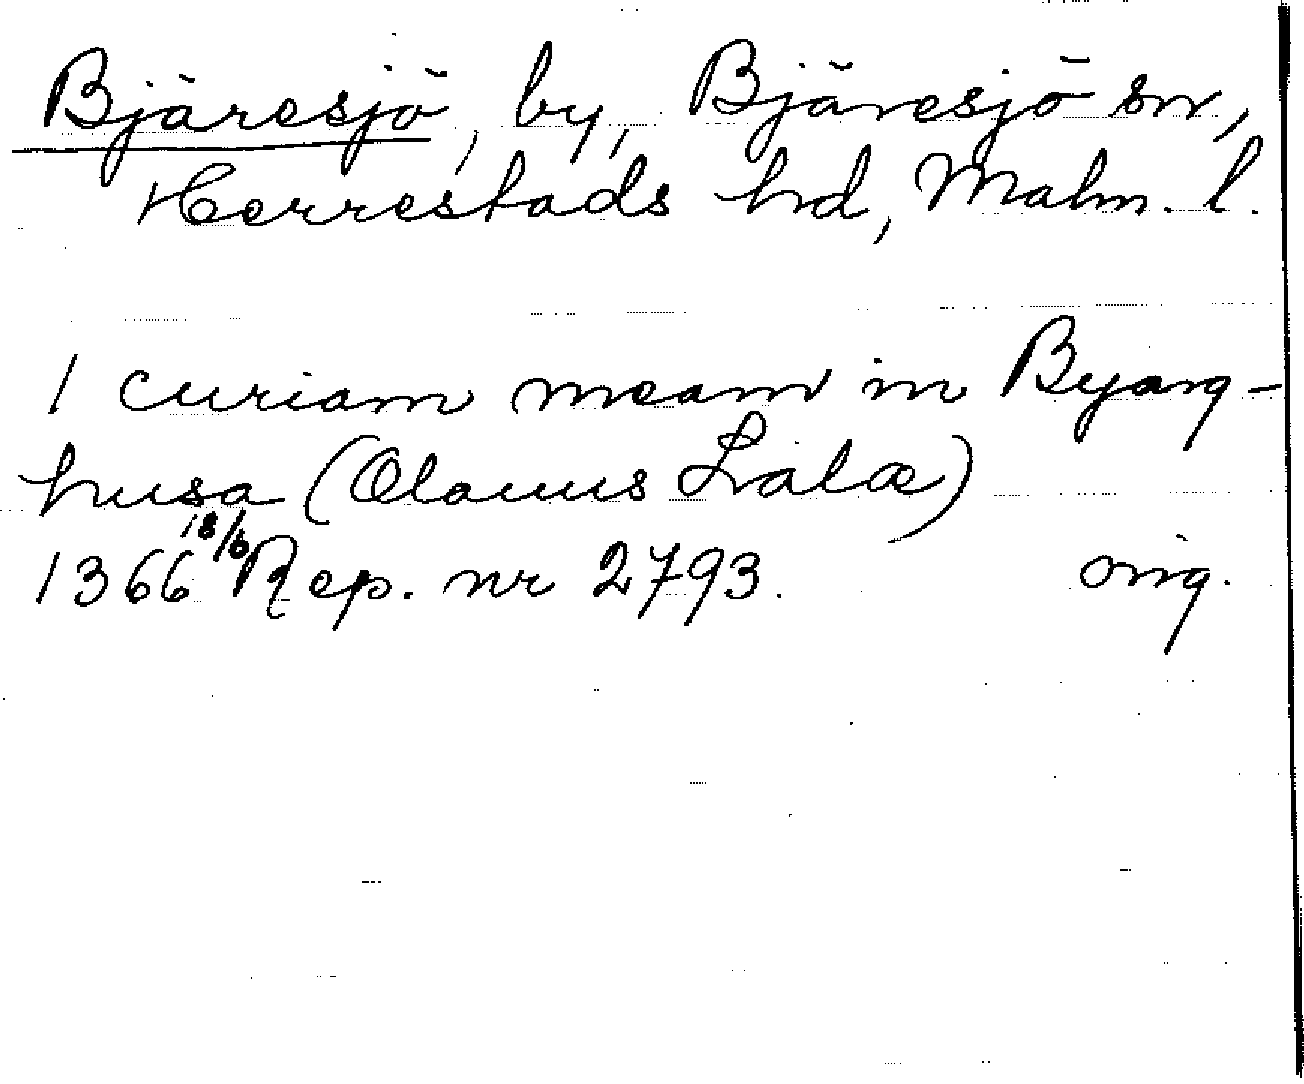 Bjäresjö, by, Bjäresjö sn,
Herrestads hd, Malm. l.
1 curiam meam in Byarg-
husa (Olauus Lalæ)
1366 18/6 Rep. nr 2793. orig.